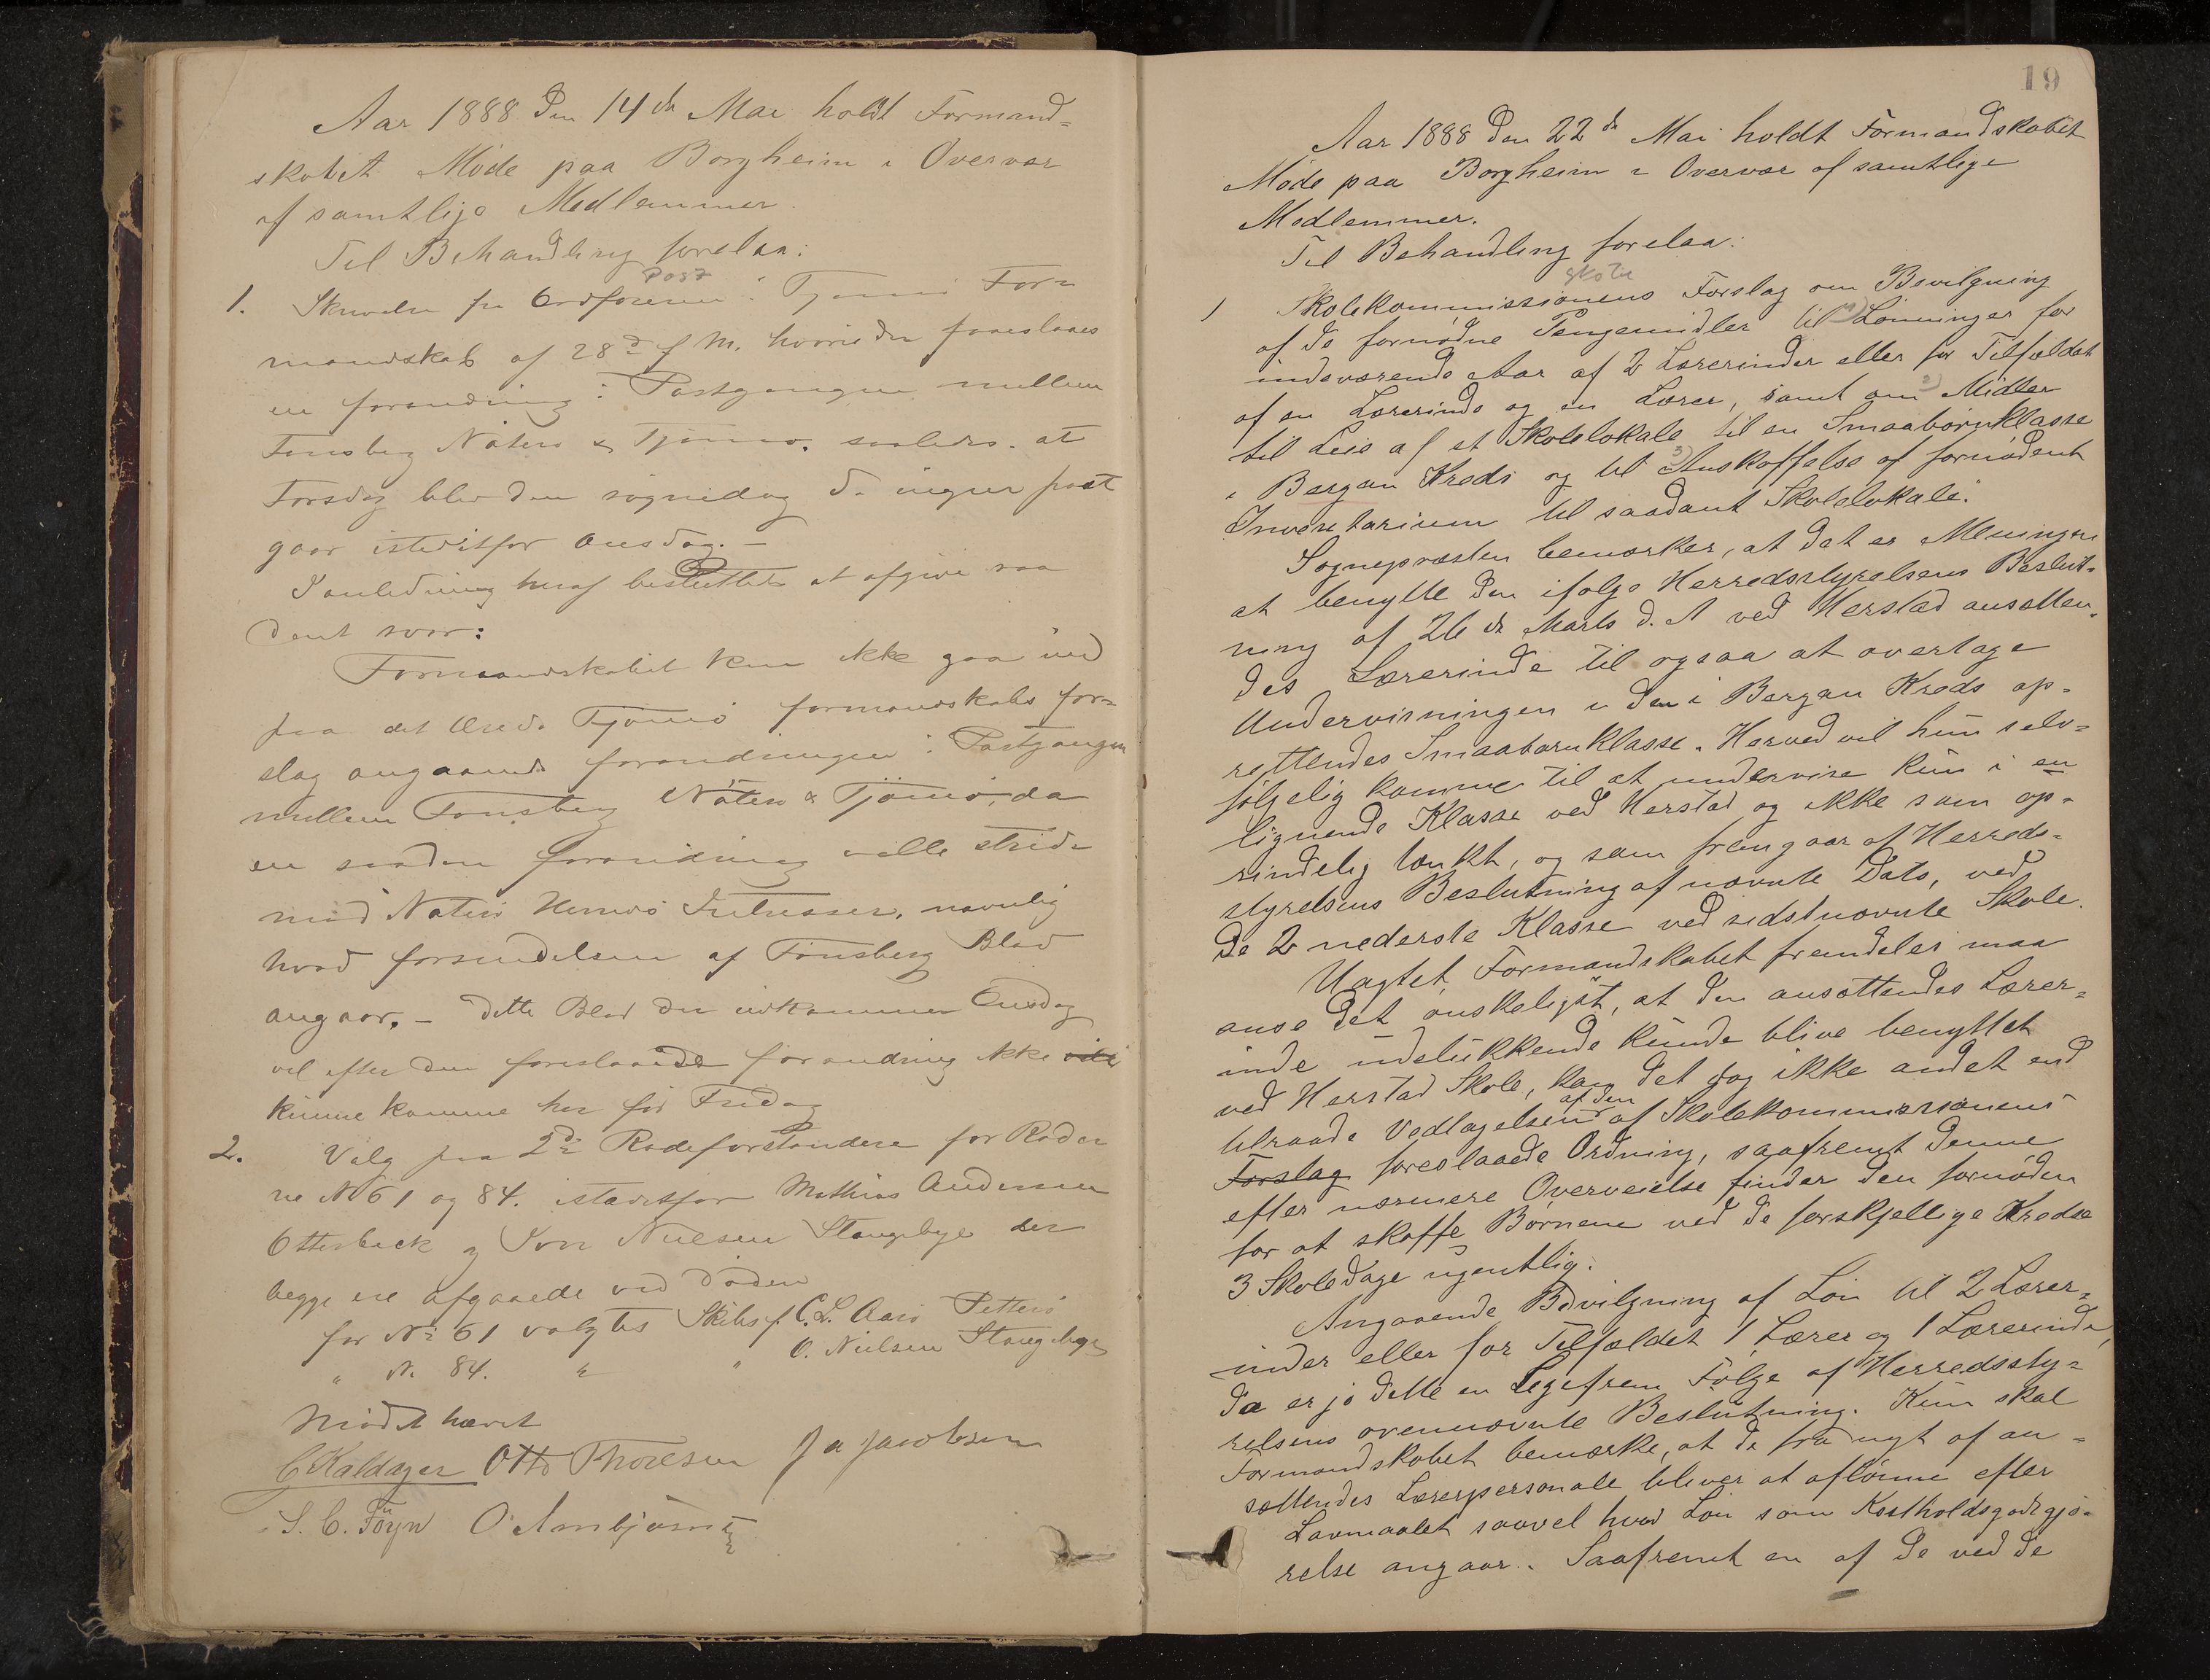 Aar 1888 den 14de Mai holdt Formand=
skabet Møde paa Borgheim i Overvær
af samtlige Medlemmer.
Til Behandling forelaa:
Post
1. Skrivelse fra Ordføreren i Tjømø For=
mandskab af 28de f M. hvori der foreslaaes
en forandring i Postgangen mellem
Tønsberg Nøterø & Tjømø. saaledes. at
Torsdag blev den søgnedag da ingen post
gaar istedetfor Onsdag. –
I anledning heraf besluttedes at afgive saa
dant svar:
Formandskabet kan ikke gaa ind
paa det ærede Tjømø formandskabs for=
slag angaaende forandringen i Postgangen
mellem Tønsberg Nøterø & Tjømø, da
en saadan forandring ville stride
mod Nøterø Herreds Interesser, navnlig
hvad forsendelsen af Tønsberg Blad
angaar. – dette Blad der udkommer Onsdag
vil efter den foreslaaede forandring ikke ville
kunne komme her før Fredag
2. Valg paa 2de Rodeforstandere for Roder
ne No 61 og 84. istedetfor Mathias Andersen
Otterbeck og Iver Nielsen Stangebye der
begge ere afgaaede ved Døden
for No 61 valgtes Skibsf. C. L. Aarø Petterø
" N. 84. " " O. Nielsen Stangebye
Mødet hævet
C Kaldager Otto Thoresen J A Jacobsen
S. C. Föyn O. Arnbjørnsen
19
Aar 1888 den 22de Mai holdt Formandskabet
Møde paa Borgheim i Overvær af samtlige
Medlemmer.
Til Behandling forelaa:
Skole
1 Skolekommissionens Forslag om Bevilgning
af de fornødne Pengemidler til 1) Lønninger for
indeværende Aar af 2 Lærerinder eller for Tilfældet
af en Lærerinde og en Lærer, samt om 2) Midler
til Leie af et Skolelokale til en Smaabørnklasse
i Bergan Kreds og til 3) Anskaffelse af fornødent
Inventarium til saadant Skolelokale.
Sognepresten bemærker, at det er Meningen
at benytte den ifølge Herredsstyrelsens Beslut=
ning af 26de Marts d. A ved Herstad ansætten=
des Lærerinde til ogsaa at overtage
Undervisningen i den i Bergan Kreds op=
rettendes Smaabarnklasse. Herved vil hun selv=
følgelig komme til at undervise kun i en
lignende Klasse ved Herstad og ikke som op=
rindelig tænkt, og som fremgaar af Herreds=
styrelsens Beslutning af nævnte Dato, ved
de 2 nederste Klasse ved sidstnævnte Skole.
Uagtet Formandskabet fremdeles maa
anse det ønskeligst, at den ansættendes Lærer=
inde udelukkende kunde blive benyttet
ved Herstad Skole, kan det dog ikke andet end
af den
tilraade Vedtagelsen af Skolekommissionens
Forslag foreslaaede Ordning, saafremt denne
efter nærmere Overveielse finder den fornøden
for at skaffe Børnene ved de forskjellige Kredse
3 Skoledage ugentlig.
Angaaende Bevilgning af Løn til 2 Lærer=
inder eller for Tilfældet 1 Lærer og 1 Lærerinde,
da er jo dette en ligefrem Følge af Herredssty=
relsens ovennævnte Beslutning. Kun skal
Formandskabet bemærke, at de fra nyt af an=
sættendes Lærerpersonale bliver at aflønne efter
Lavmaalet saavel hvad Løn som Kostholdsgodtgjø=
relse angaar. Saafremt en af de ved de